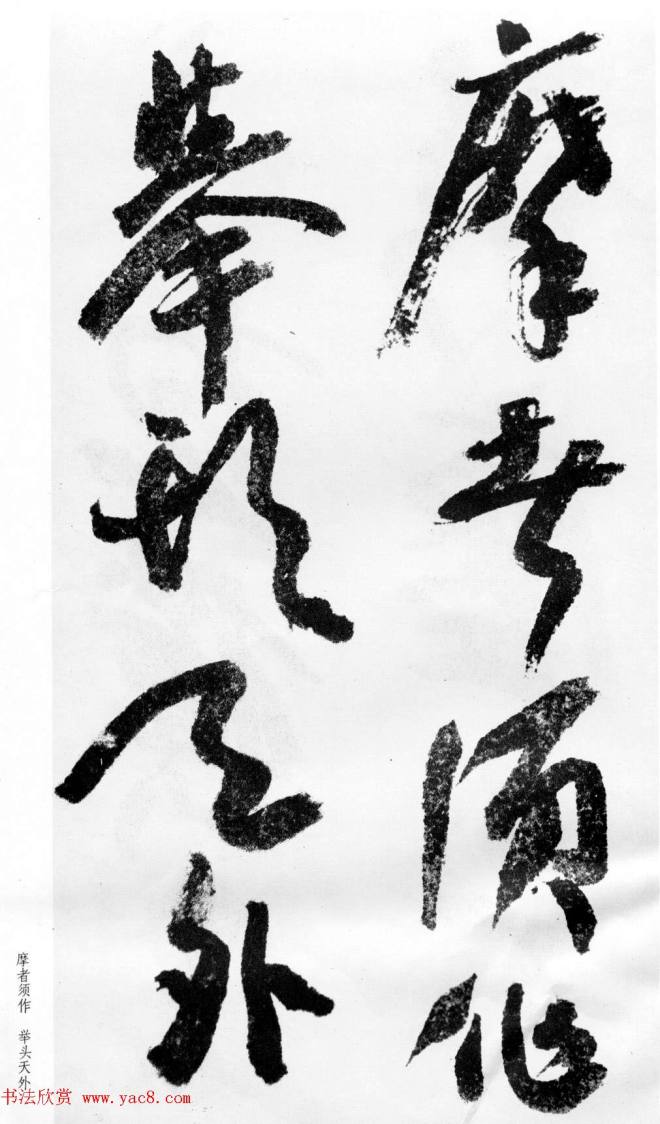 摩者須作
舉頭天外
摩者须作 举头天外
书法欣赏 www.yac8.com